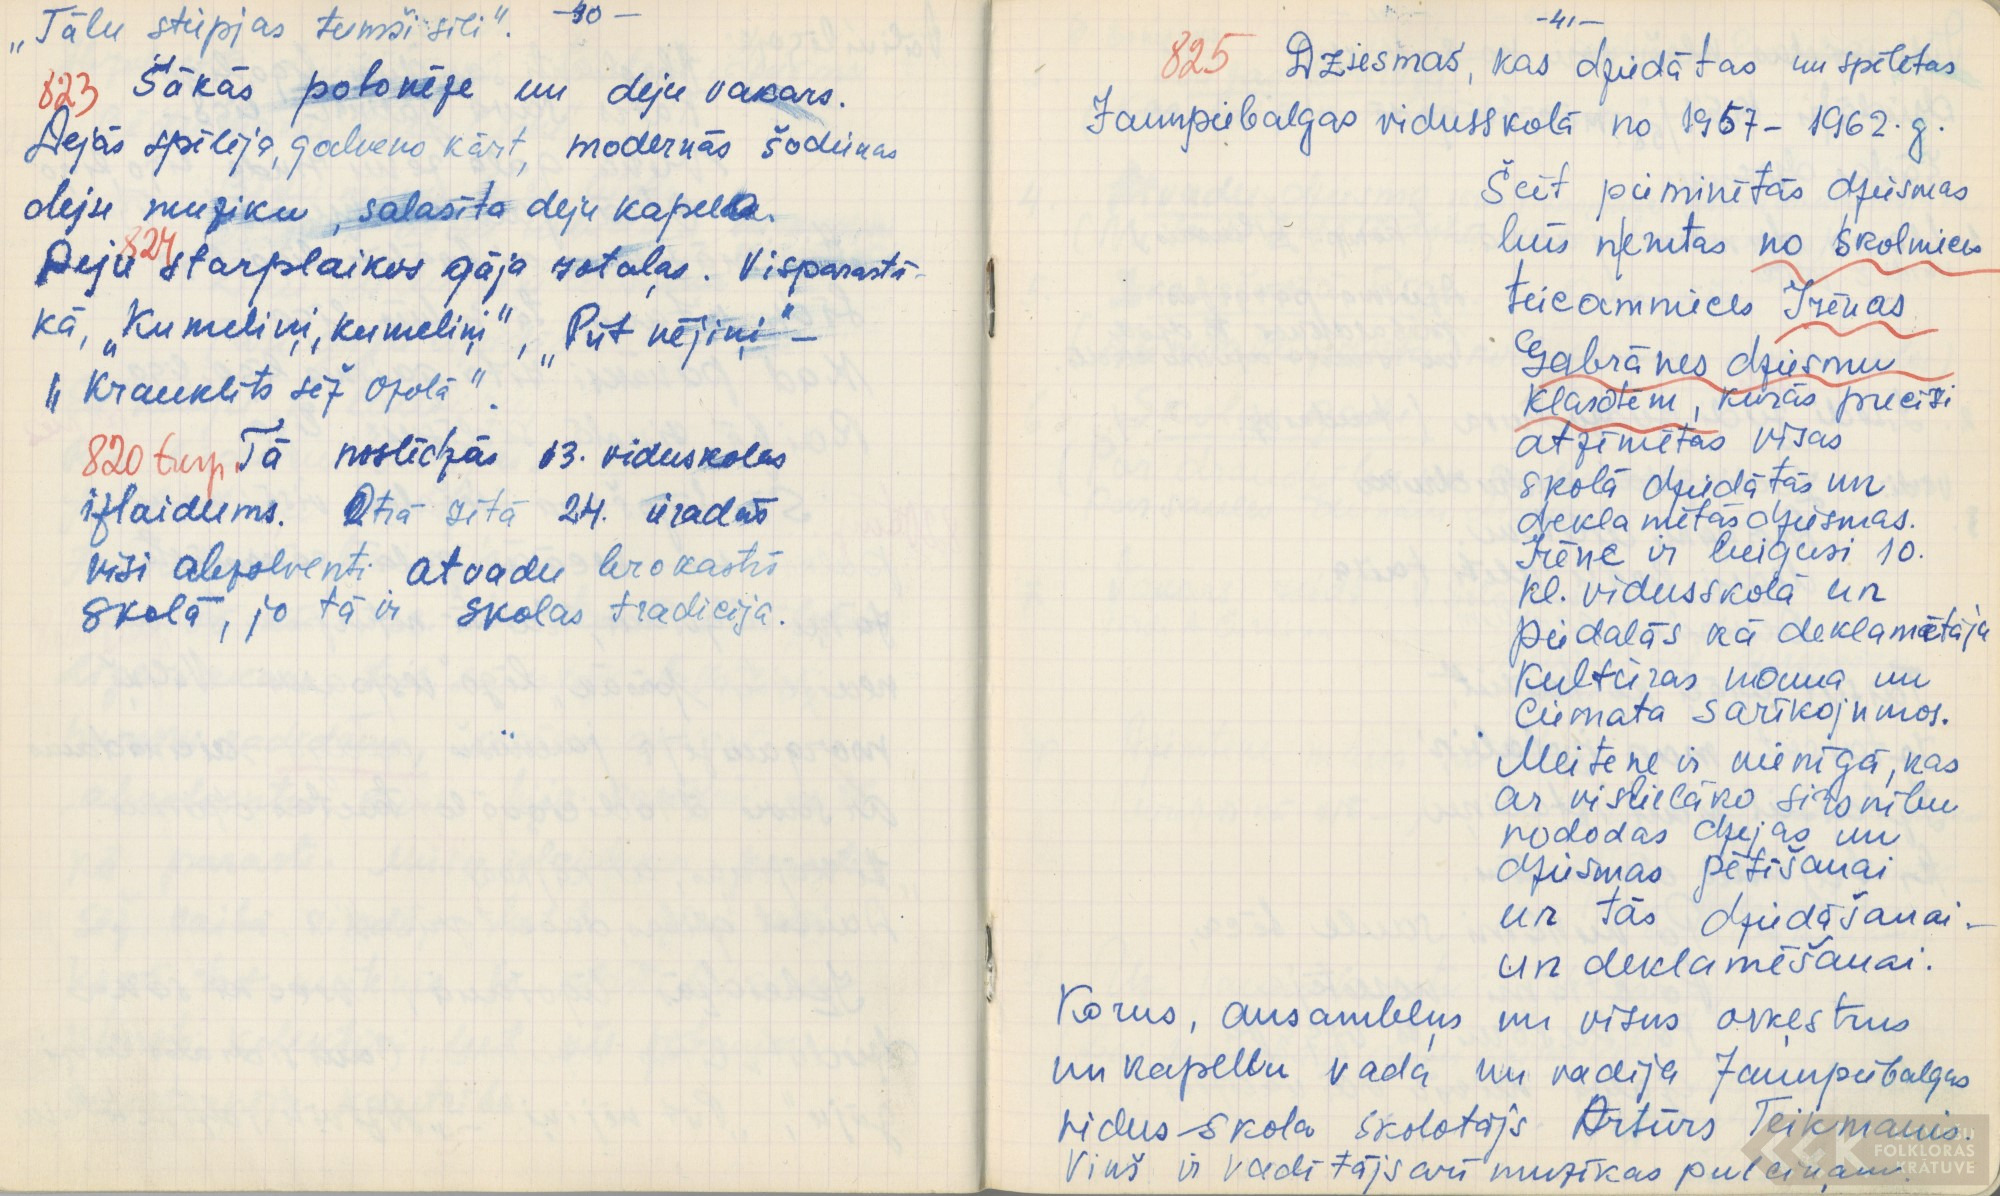 -40-
„Tālu stiepjas tumši sili".
823 Sākās polonēze un deju vakars.
Dejās spēlēja, galveno kārt, modernās šodienas
deju muziku, salasīta deju kapella.
824
Deju starplaikos gāja rotaļas. Visparastā-
kā, „Kumeliņi, kumeliņi", „Pūt vējiņi" –
„Krauklīts sēž ozolā".
820 turp. Tā noslēdzās 13. viduskolas
izlaidums. Otrā rītā 24. ieradās
visi abzolventi atvadu brokastīs
skolā, jo tā ir skolas tradicija.
-41-
825 Dziesmas, kas dziedātas un spēlētas
Jaunpiebalgas vidusskolā no 1957 – 1962. g.
Šeit pieminētās dziesmas
būs ņemtas no skolnieces
teicamnieces Irēnas
Gabrānes dziesmu
klasēm, kurās precizi
atzīmētas visas
skolā dziedātās un
deklamētās dziesmas.
Irēne ir beigusi 10.
kl. vidusskolā un
piedalās kā deklamētāja
Kultūras nama un
Ciemata sarīkojumos.
Meitene ir vienīgā, kas
ar vislielāko sirsnību
nododas dzejas un
dziesmas pētīšanai
un tās dziedāšanai –
un deklamēšanai.
Korus, ansambļus un visus orķestrus
un kapellu vada un vadīja Jaunpiebalgas
vidus-skola skolotājs Artūrs Teikmanis.
Viņš ir vadītājs arī muzīkas pulciņam.
FOLKLORAS
KRĀTUVE